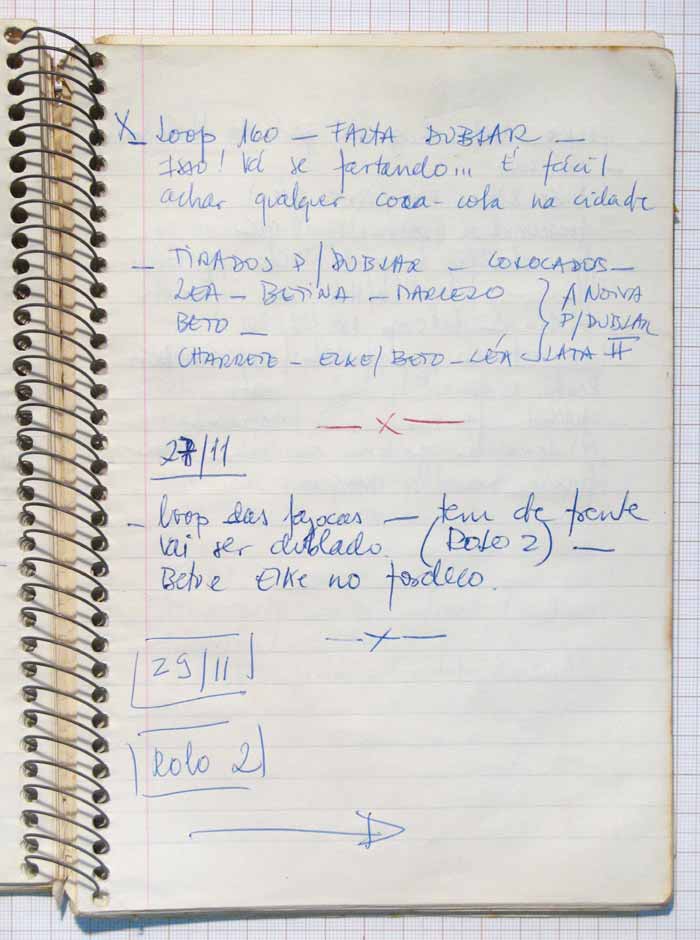 X - Loop 160 - FALTA DUBLAR -
Isso! Vá se fartando... É fácil
achar qualquer coca-cola na cidade
- TIRADOS P/DUBLAR - COLOCADOS -
LEA - BETINA - MARCELO } A NOIVA
BETO - P/DUBLAR
CHARRETE - ELKE/BETO - LÉA LATA II
- X -
27/11
- Loop das - tem de frente
vai ser dublado. (ROLO 2) -
Beto e Elke no
- X -
29/11
Rolo 2